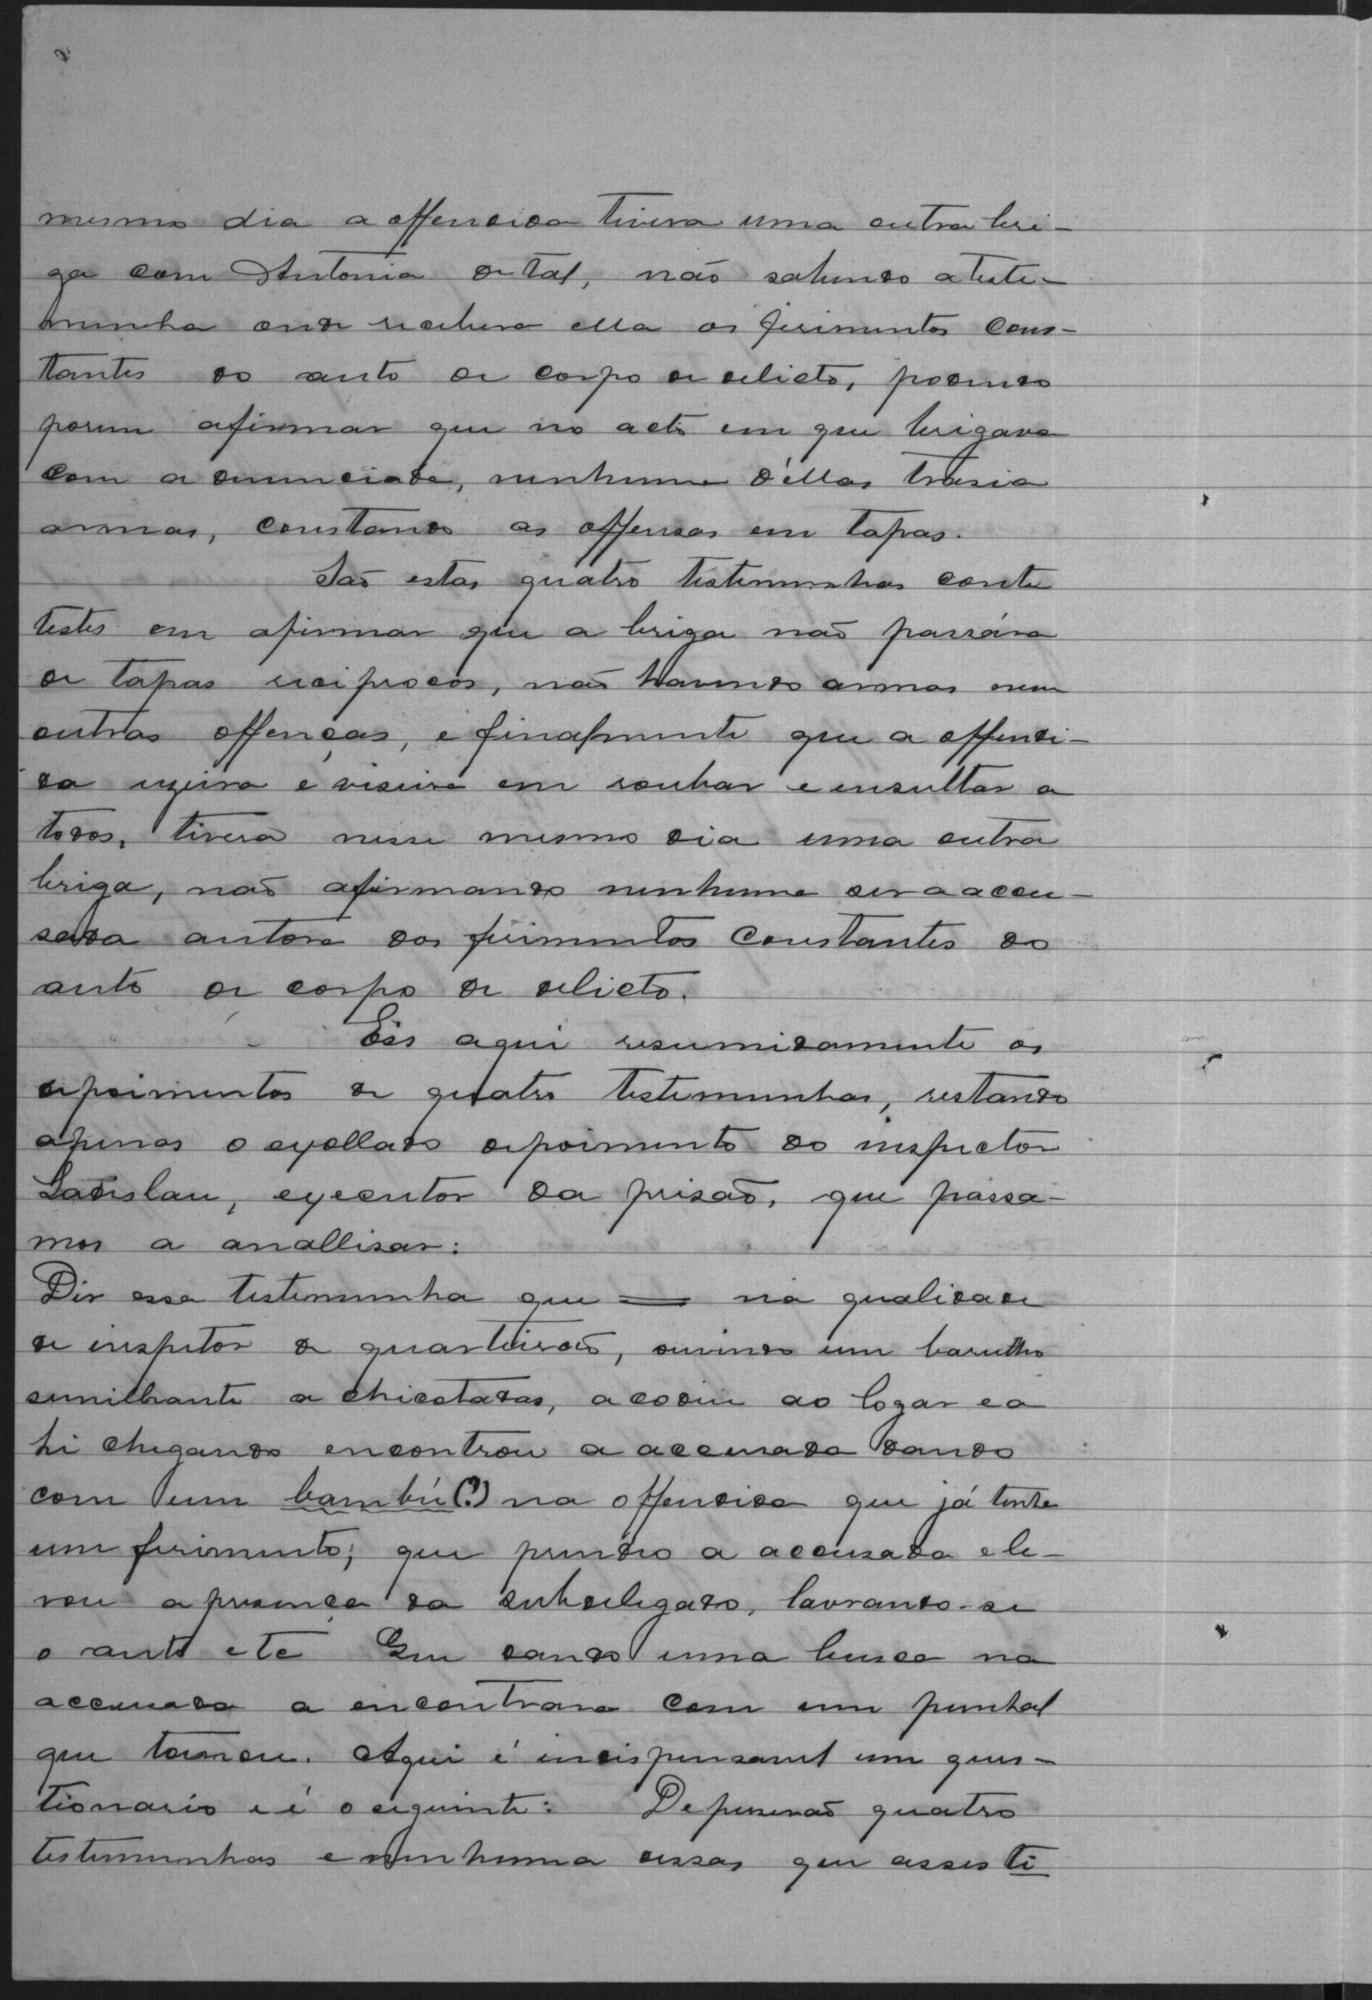 mesmo dia a offendida tivera uma outra bri-
ga com Antonia de tal, não sabendo a teste-
munha onde recebera ella os ferimentos cons-
tantes do auto de corpo de delicto, podendo
porem afirmar que no acto em que brigava
com a denunciada, nenhuma d'éllas trasia
armas, constando as offensas em tapas.
São estas quatro testemunhas conte
testes em afirmar que a briga não passára
de tapas reciprocos, não havendo armas nem
outras offenças, e finalmente que a offendi-
da uzeira e viseira em roubar e insultar a
todos, tivera nesse mesmo dia uma outra
briga, não afirmando nenhuma ser a accu-
sada autora dos ferimentos constantes do
auto de corpo de delicto.
Eis aqui resumidamente os
depoimentos de quatro testemunhas, restando
apenas o depoimento do inspector
Ladislau, executor da prisão, que passa-
mos a anallisar:
Diz essa testemunha que = na qualidade
de inspetor de quarteirão, ouvindo um barulho
semilhante a chicotadas, acodiu ao logar e a
hi chegando encontrou a accusada dando
com um bambú (?) na offendida que já tinha
um ferimento; que prendeo a accusada e le-
vou a presença do subdelegado, lavrando-se
o auto etc Que dando uma busca na
accusada a encontrara com um punhal
que tomou. Aqui é indispensavel um ques-
tionario e é o seguinte: Depuserão quatro
testemunhas e nenhuma dessas que assisti